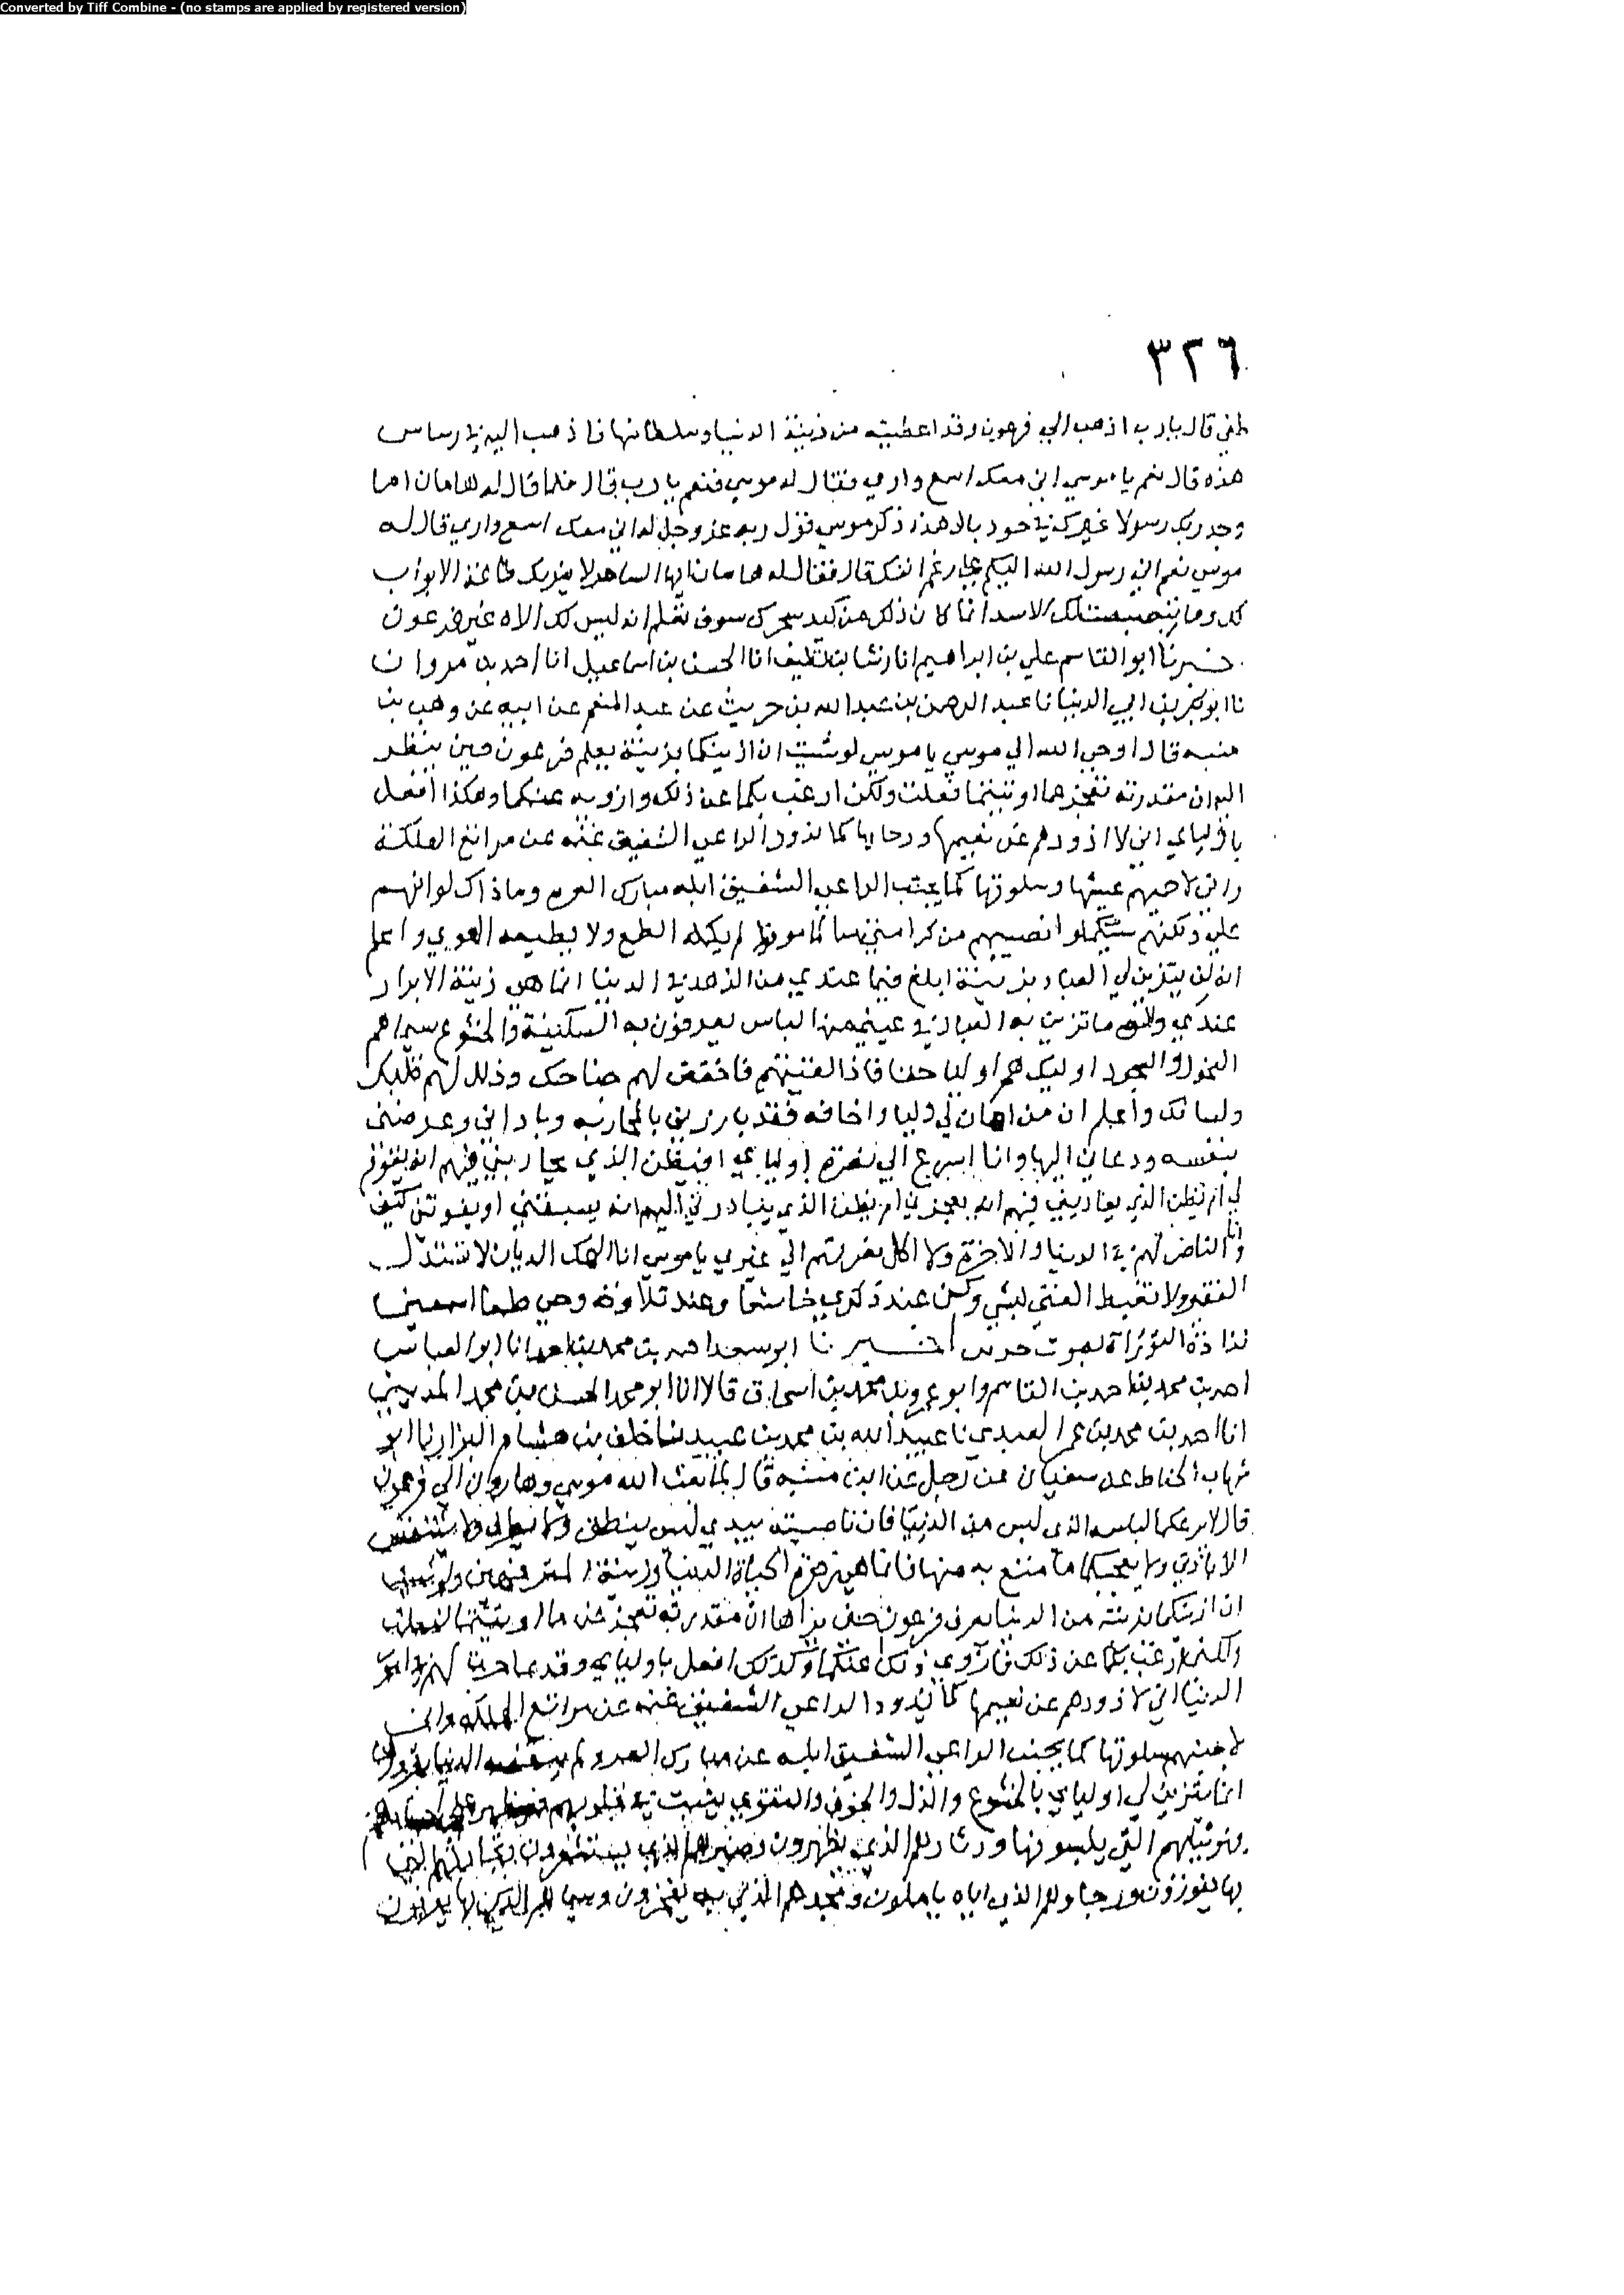 Converted by Tiff Combine - (no stamps are applied by registered version)
٣٢٦
طغي قال يارب اذهب الي فرعون وقد اعطيته من زينة الدنيا وسلطانها فاذهب اليه في
هذه قال نعم يا موسي اني معك اسمع واري فقال له موسي فنعم يا رب قال فلما قال له هامان اما
وجد ربك رسولا غيرك في هذه ذكر موسي قول ربه عز وجل له اني معك اسمع واري قال له
موسي نعم اني رسول الله اليكم علي رغم انفك قال فقال له هامان ايها الساحر لا يغرنك طاعة الابواب
لك وما الاسد انما كان ذلك من كيد سحرك سوف تعلم انه ليس لك الاه غير فرعون
خبرنا ابو القاسم علي بن ابراهيم انا رشا بن نظيف انا الحسن بن اسماعيل انا احمد بن مروان
نا ابو بكر بن ابي الدنيا نا عبد الرحمن بن عبد الله بن حريث عن عبد المنعم عن ابيه عن وهب بن
منبه قال اوحي الله الي موسي يا موسي لو شئت ان ازينكما بزينة يعلم فرعون حين ينظر
اليه ان مقدرته تعجز عما اوتيتما فعلت ولكن ارغب بكما عن ذلك وازويه عنكما وهكذا افعل
باوليا ي اني لا اذودهم عن نعيمها ورخايها كما يذود الراعي الشفيق غنمه عن مراتع الهلكة
واني لاجنبهم عيشها وسلوتها كما يجنب الراعي الشفيق ابله مبارك العر وما ذاك لهوانهم
علي ولكنهم ليستكملوا نصيبهم من كرامتي سالما موفرا لم يكلمه الطمع ولا يطبعه الهوي واعلم
انه لن يتزين لي العباد بزينة ابلغ فيما عندي من الزهد في الدنيا انما هي زينة الابرار
عندي ما تزين به العباد في عيني من الباس يعرفون به السكينة والخشوع سيماهم
النحول والسجود اوليك هم اوليا حقا فاذا لقيتهم فاخفض لهم جناحك وذلل لهم قلبك
ولسانك واعلم ان من اهان لي وليا واخافه فقد بارزني بالمحاربة وباداني وعرضني
بنفسه ودعاني اليها وانا اسرع الي نصرة اوليا ي افيظن الذي يحاربني فيهم انه يقوم
لي ام يظن الذي يعاديني فيهم انه يعجزني ام يظن الذي يبادرني اليهم انه يسبقني او يفوتني كيف
وانا الناصر لهم في الدنيا والاخرة ولا اكل نصرتهم الي غيري يا موسي انا الهك الديان لا تستذل
الفقير ولا تغبط الغني بشي وكن عند ذكري خاشعا وعند تلاوة وحي طمعا اسمعني
لذاذة التوراة بصوت حزين اخبرنا ابو سعد احمد بن محمد بن انا ابو العباس
احمد بن محمد بن احمد بن القاسم وابو عمرو بن محمد بن اسحاق قالا انا ابو محمد الحسن بن محمد المديني
انا احمد بن محمد بن عمر العبدي نا عبيد الله بن محمد بن عبيد نا خلف بن هشام البزار نا ابو
شهاب الحناط عن سفيان عن رجل عن ابن منبه قال لما بعث الله موسي وهارون الي فرعون
قال لا يرعكما لباسه الذي لبس من الدنيا فان ناصيته بيدي ليس ينطق ولا ولا يتنفس
الا باذني ولا يعجبكما ما متع به منها فانما هي زهرة الحياة الدنيا وزينة المترفين ولو شيت
ان ازينكما بزينة من الدنيا يعرف فرعون حين يراها ان مقدرته تعجز عن ما اوتيتما لفعلت
ولكني ارغب بكما عن ذلك فازوي ذلك عنكما وكذلك افعل باوليا ي وقديما خرت لهم في امور
الدنيا اني لاذودهم عن نعيمها كما يذود الراعي الشفيق غنمه عن مراتع الهلكة واني
لاجنبهم سلوتها كما يجنب الراعي الشفيق ابله عن مبارك العر
انما يتزين لي اوليا ي بالخشوع والذل والخوف والتقوي يثبت في قلوبهم فيظهر علي
التي يلبسونها ودثارهم الذي يظهرون وضميرهم الذي يستشعرون ونجاتهم التي
بها يفوزون ورجاوهم الذي اياه ياملون ومجدهم الذي به يفخرون وسيماهم التي بها يعرفون